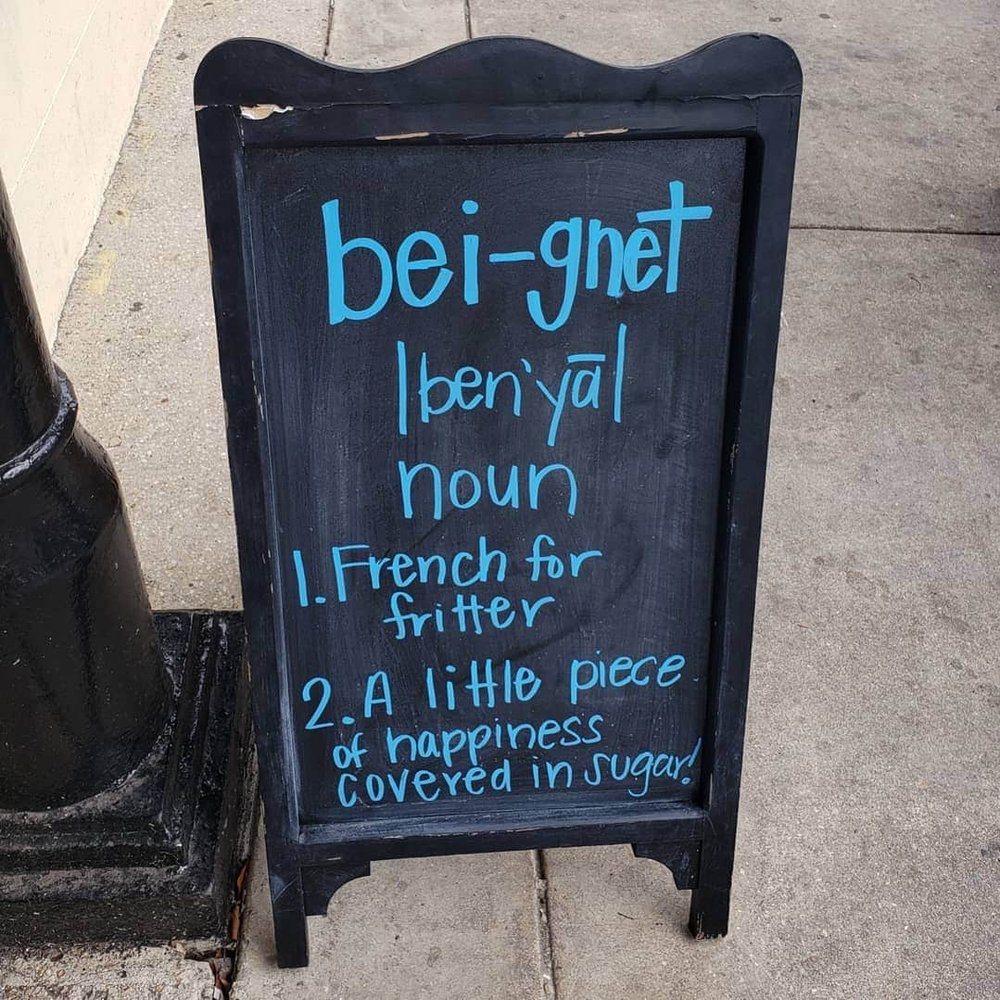 bei-gnet
|ben'yā|
noun
1. French for
fritter
2. A little piece
of happiness
covered in sugar!